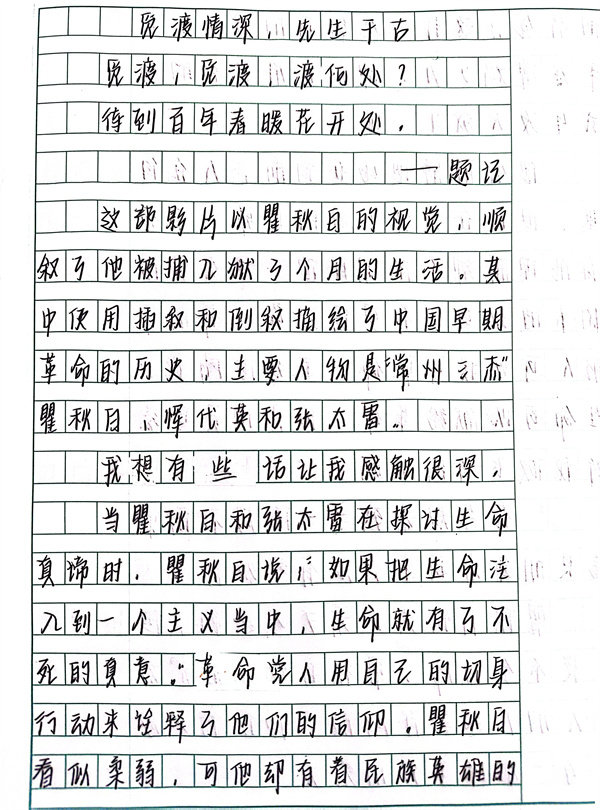 觅渡情深，先生千古
觅渡，觅渡，渡何处？
待到百年春暖花开处。
——题记
这部影片以瞿秋白的视觉，顺
叙了他被捕入狱了个月的生活。其
中使用插叙和倒叙描绘了中国早期
革命的历史，主要人物是“常州三杰”
瞿秋白，恽代英和张太雷。
我想有一些话让我感触很深。
当瞿秋白和张太雷在探讨生命
真谛时，瞿秋白说：“如果把生命注
入到一个主义当中，生命就有了不
死的真意。”革命党人用自己的切身
行动来诠释了他们的信仰。瞿秋白
看似柔弱，可他却有着民族英雄的